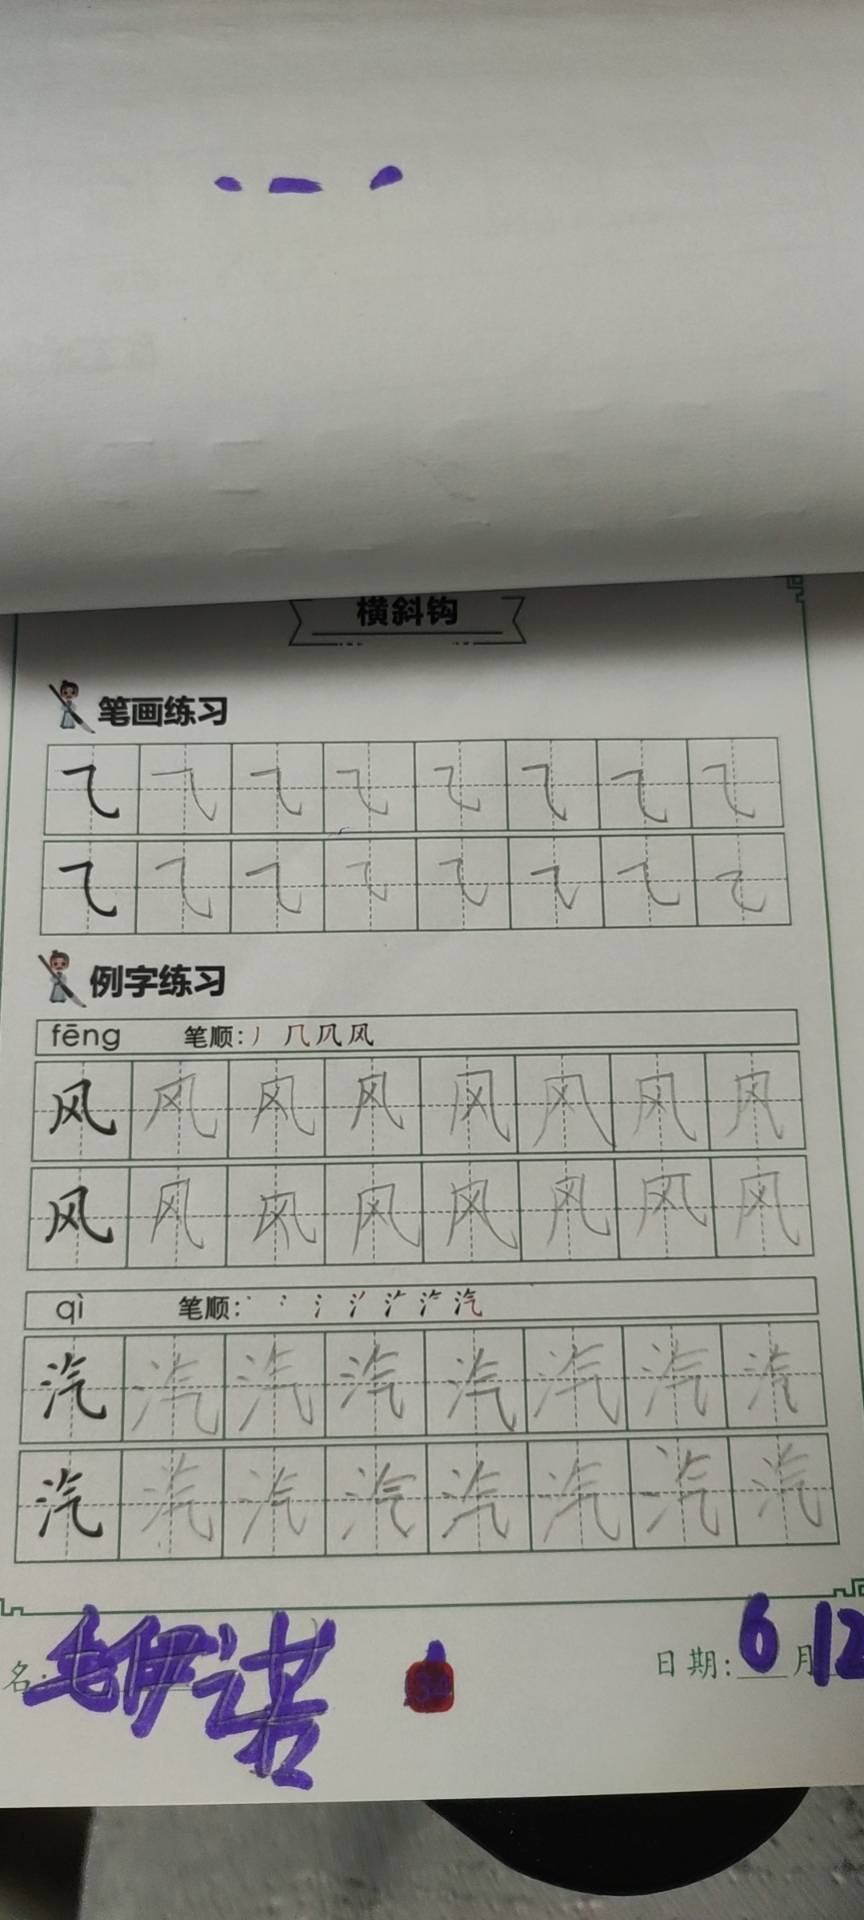 横斜钩
笔画练习
⺄ ⺄ ⺄ ⺄ ⺄ ⺄ ⺄ ⺄
⺄ ⺄ ⺄ ⺄ ⺄ ⺄ ⺄ ⺄
例字练习
fēng 笔顺:丿 几 凤 风
风 风 风 风 风 风 风 风
风 风 风 风 风 风 风 风
qì 笔顺:
汽 汽 汽 汽 汽 汽 汽 汽
汽 汽 汽 汽 汽 汽 汽 汽
名:毛伊诺 日期:6月12